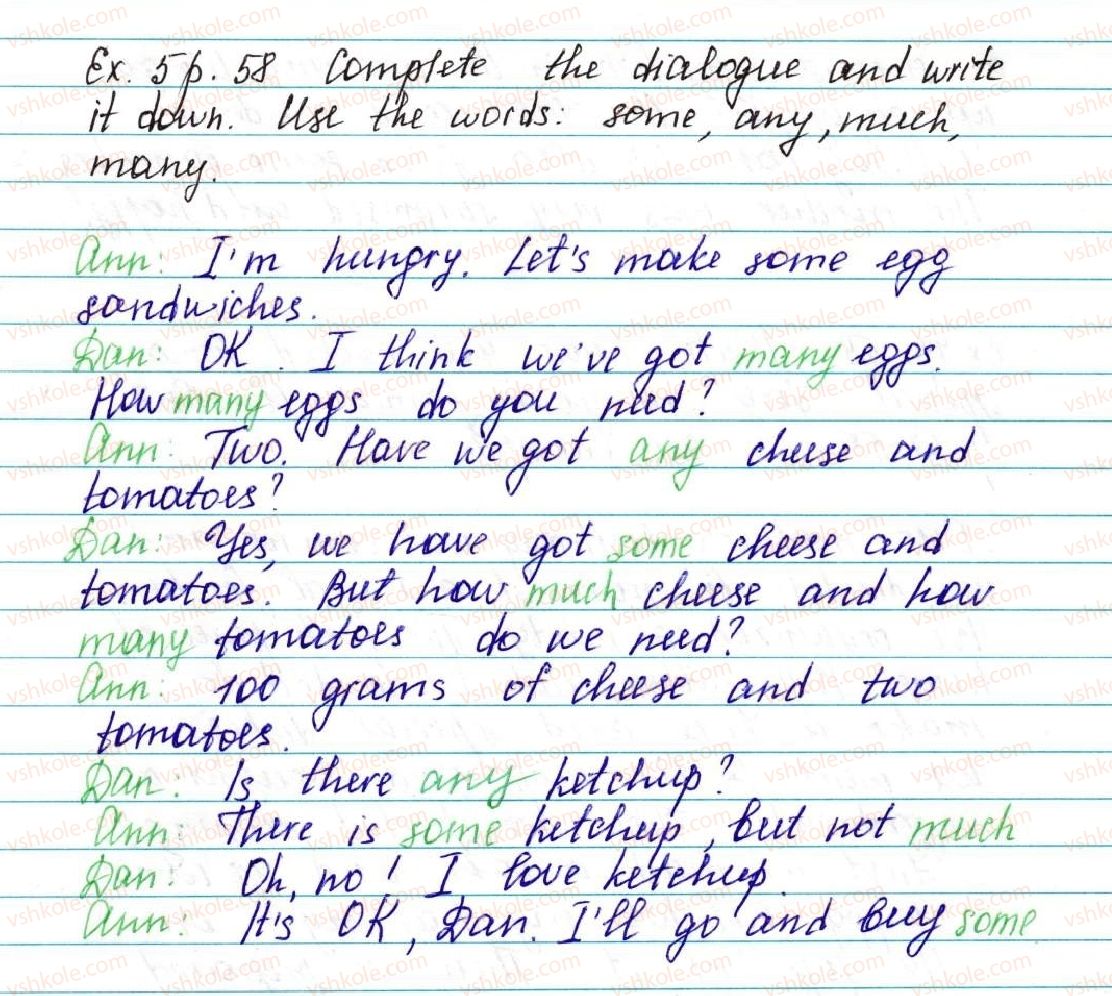 Ex. 5 p. 58 Complete the dialogue and write
it down. Use the words: some, any, much,
many.
Ann: I'm hungry. Let's make some egg
sandwiches.
Dan: OK. I think we've got many eggs.
How many eggs do you need?
Ann: Two. Have we got any cheese and
tomatoes?
Dan: Yes, we have got some cheese and
tomatoes. But how much cheese and how
many tomatoes do we need?
Ann: 100 grams of cheese and two
tomatoes.
Dan: Is there any ketchup?
Ann: There is some ketchup, but not much
Dan: Oh, no! I love ketchup.
Ann: It's OK, Dan. I'll go and buy some
vshkole.com